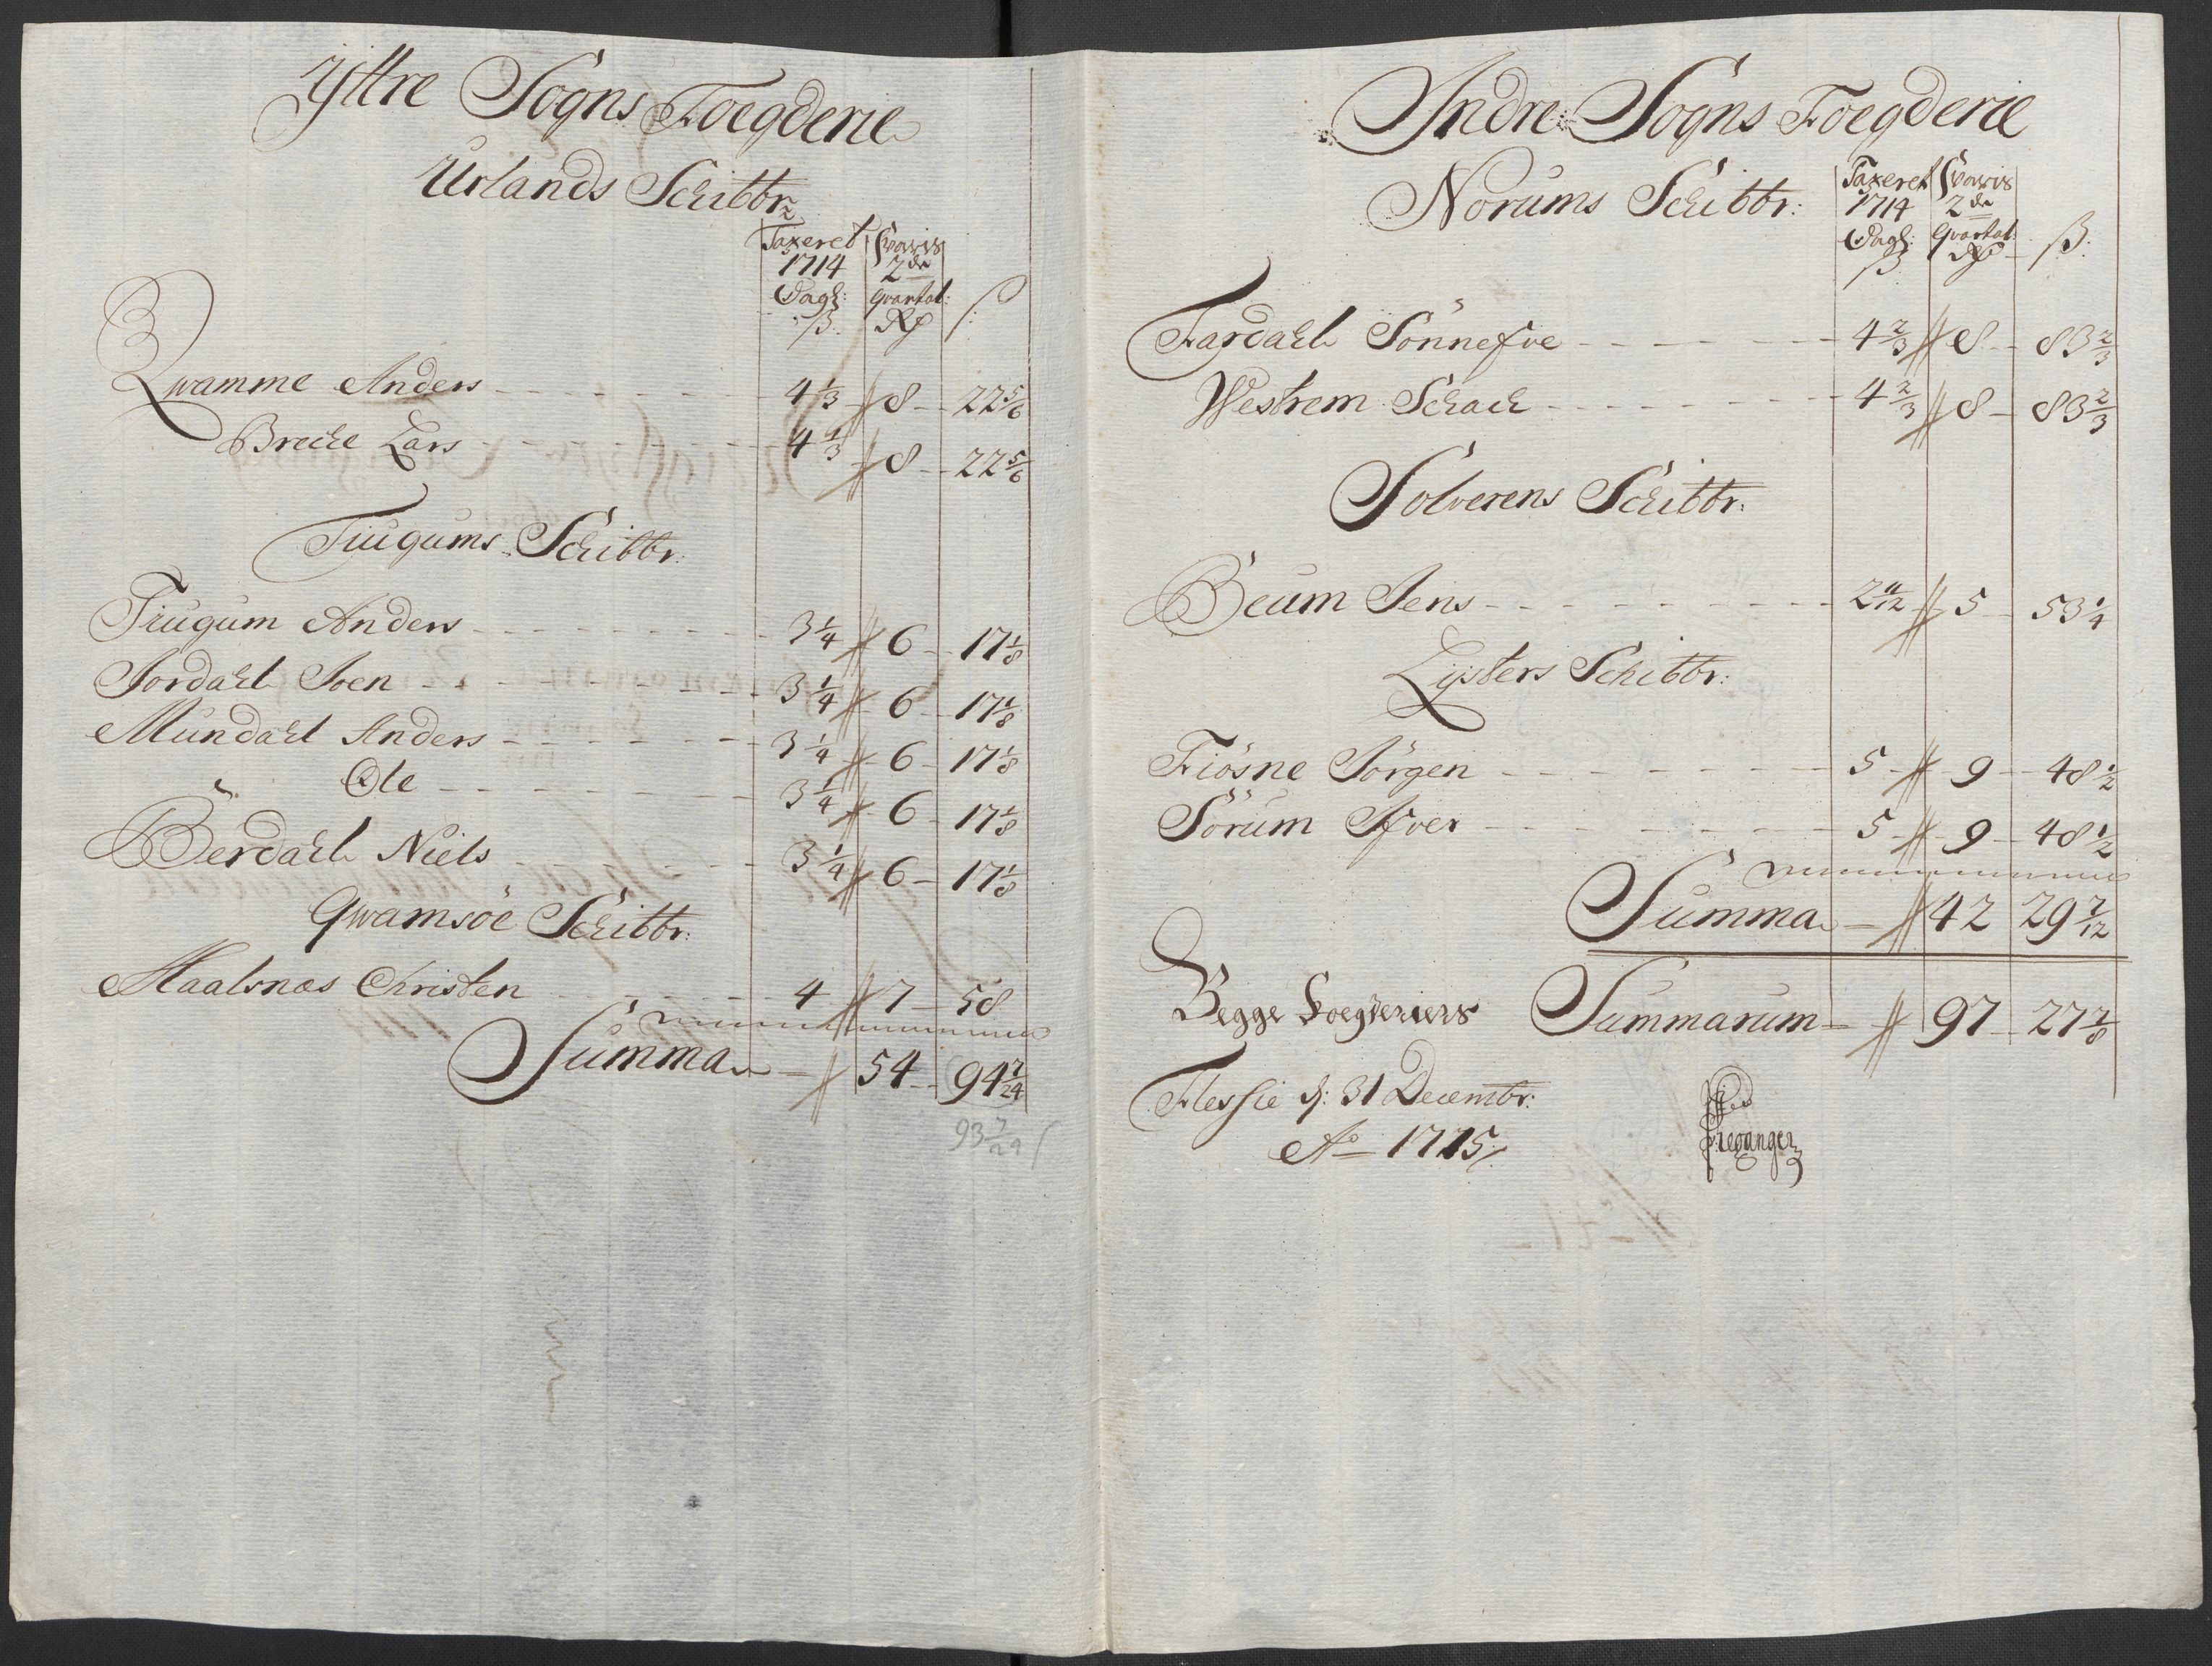 Ÿttre Sogns Foegderie
Urlands Schibbr:
Taxeret Svaris
1714 2de
Dagl: Qvartal:
ß. Rdr ß:
Qwamme Anders 4 1/3 // 8 22 5/6
Breche Lars 4 1/3 // 8 22 5/6
Tiugums Schibbr:
Tiugum Anders 3 1/4 // 6 17 1/8
Jordahl Joen 3 1/4 // 6 17 1/8
Mundahl Anders 3 1/4 // 6 17 1/8
Ole 3 1/4 // 6 17 1/8
Berdahl Niels 3 1/4 // 6 17 1/8
Qwamsöe Schibbr:
Haalsnæs Christen 4 // 7 58
Summa // 54 94 7/24
93 7/24
Indre Sogns Foegderie
Norums Schibbr:
Taxeret Svaris
1714 2de
Dagl: Qvartal:
ß. Rdr ß:
Fardahl Sönnefve 4 2/3 // 8 83 2/3
Westrem Schack 4 2/3 // 8 83 2/3
Solverens Schibbr:
Beum Jens 2 11/12 // 5 53 1/4
Lysters Schibbr:
Fiösne Jörgen 5 // 9 48 1/2
Sörum Ifver 5 // 9 48 1/2
Summa // 42 29 7/12
Begge Foegderiers Summarum // 97 27 7/8
Flessie d: 31 Decembr:
Ao 1715